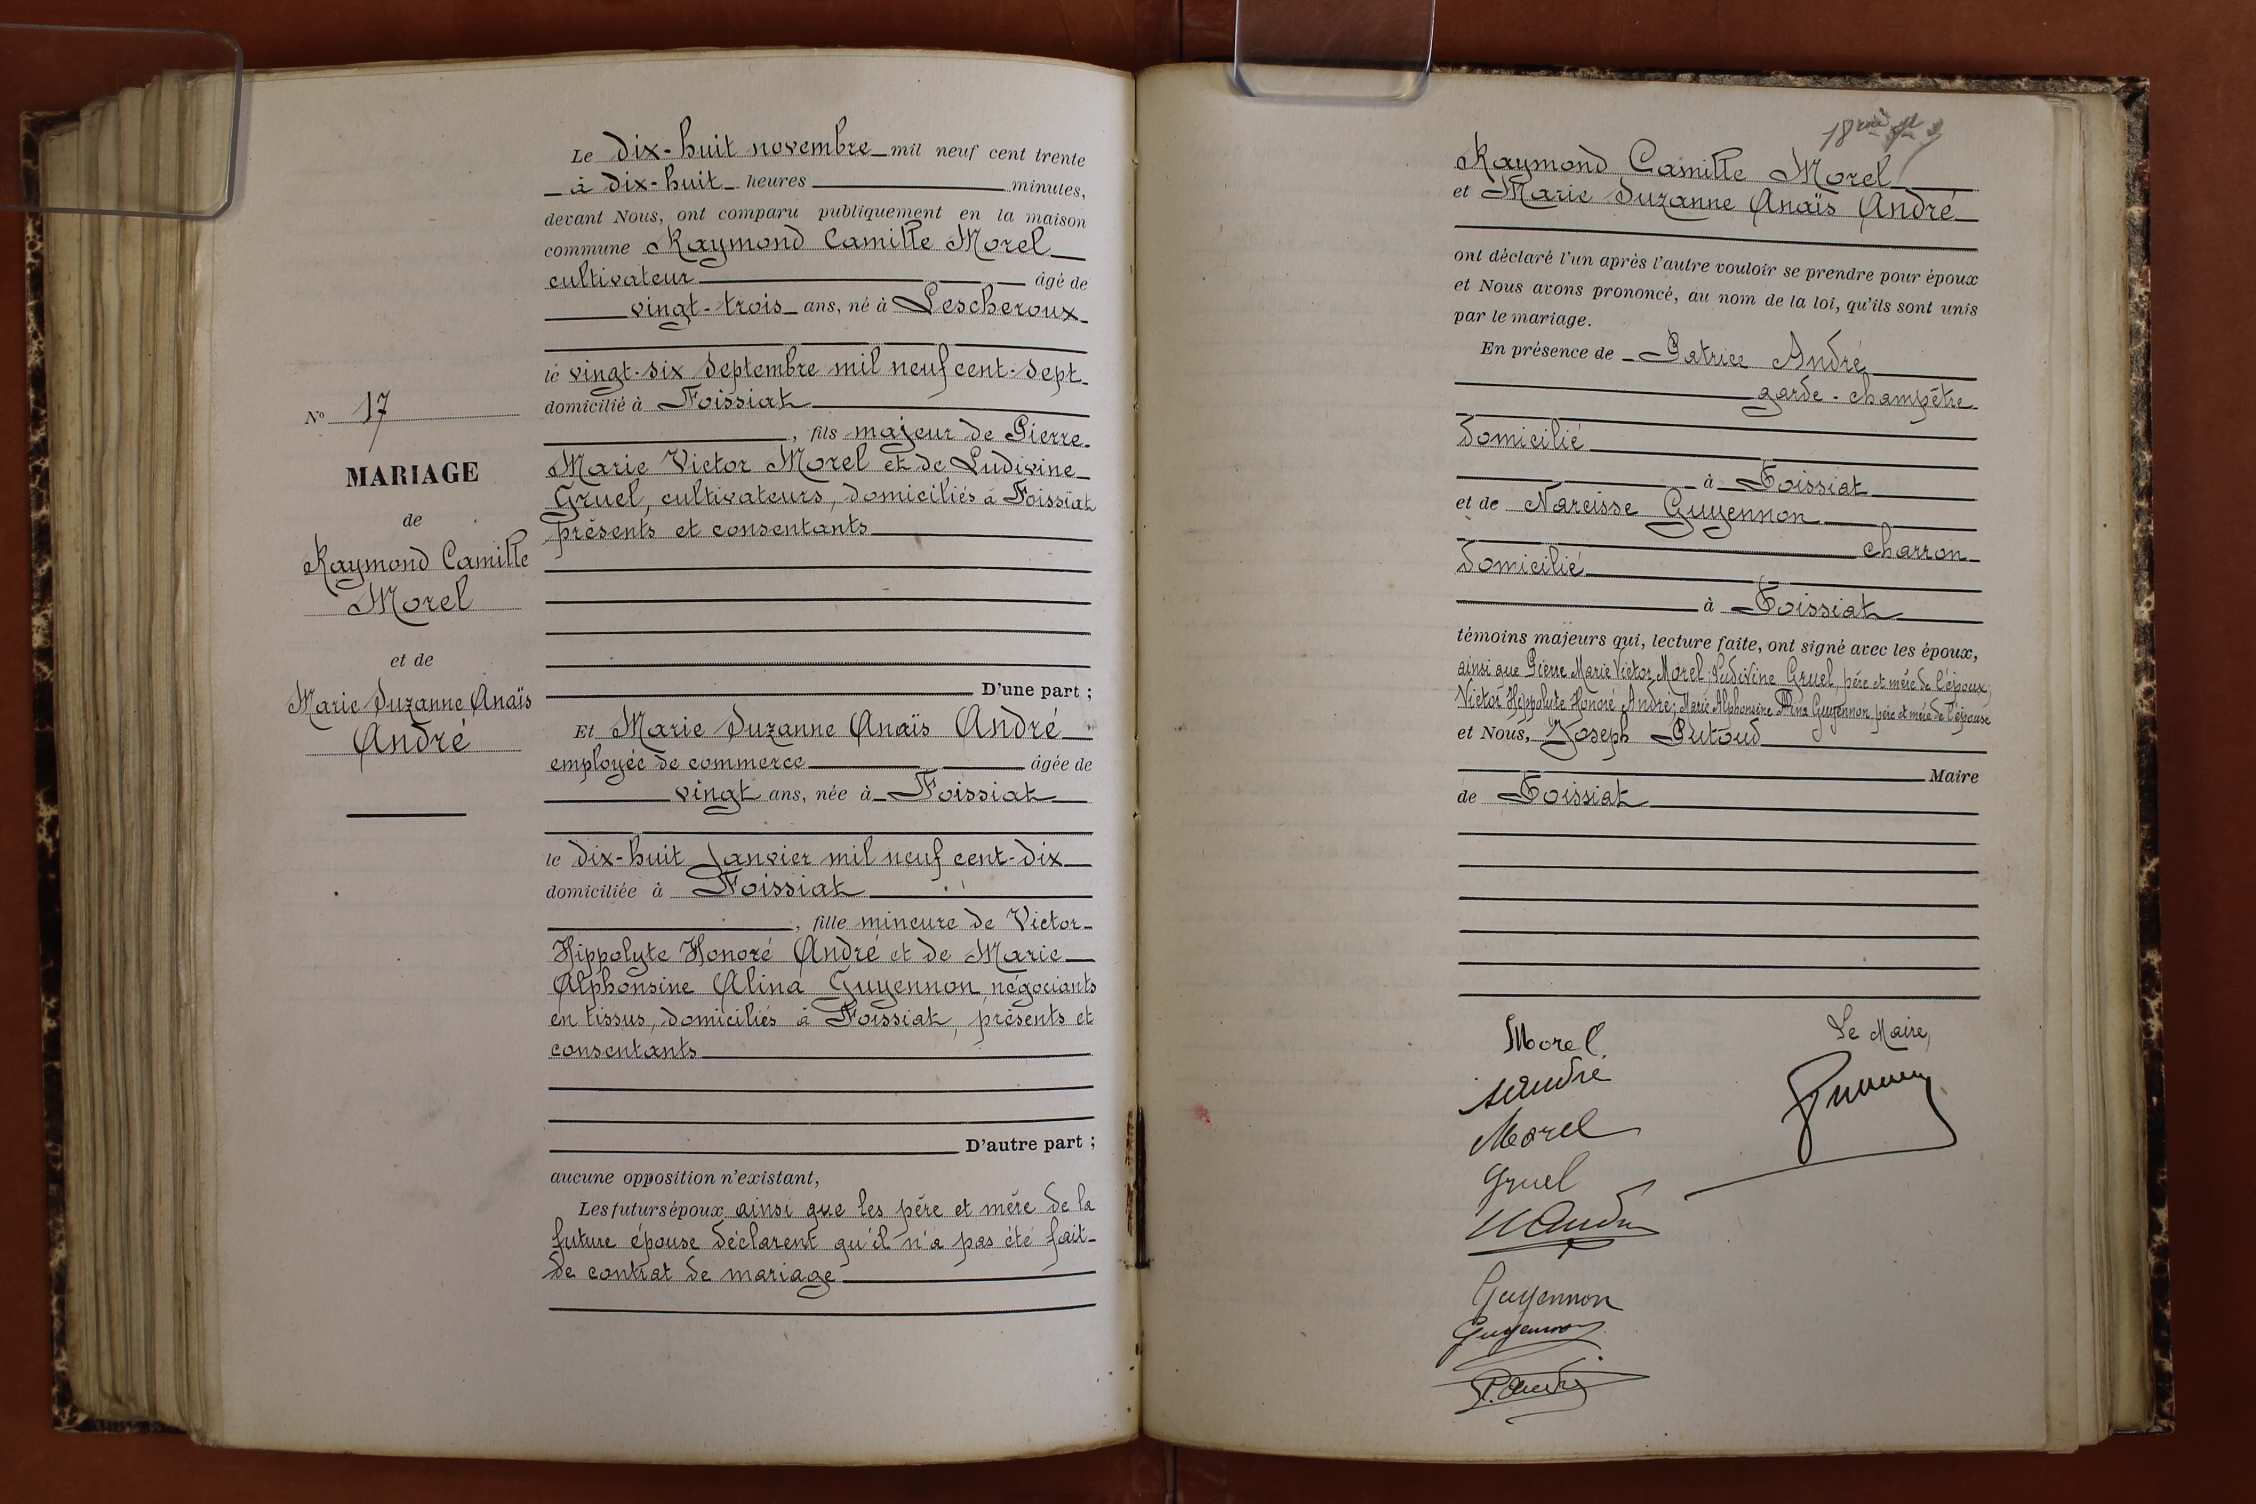 N° 17
MARIAGE
de
Raymond Camille
Morel
et de
Marie Suzanne Anaïs
André
Le dix-huit novembre mil neuf cent trente
à dix-huit heures minutes,
devant Nous, ont comparu publiquement en la maison
commune Raymond Camille Morel
cultivateur âgé de
vingt-trois ans, né à Lescheroux
le vingt-six septembre mil neuf cent-sept
domicilié à Foissiat
, fils majeur de Pierre
Marie Victor Morel et de Ludivine
Gruel, cultivateurs, domiciliés à Foissiat
présents et consentants
D'une part ;
Et Marie Suzanne Anaïs André
employée de commerce âgée de
vingt ans, née à Foissiat
le dix-huit Janvier mil neuf cent-dix
domiciliée à Foissiat
, fille mineure de Victor
Hippolyte Honoré André et de Marie
Alphonsine Alina Guyennon, négociants
en tissus, domiciliés à Foissiat, présents et
consentants
D'autre part ;
aucune opposition n'existant,
Les futurs époux ainsi que les père et mère de la
future épouse déclarent qu'il n'a pas été fait
de contrat de mariage
Raymond Camille Morel
et Marie Suzanne Anaïs André
ont déclaré l'un après l'autre vouloir se prendre pour époux
et Nous avons prononcé, au nom de la loi, qu'ils sont unis
par le mariage.
En présence de Patrice André
garde-champêtre
domicilié
à Foissiat
et de Narcisse Guyennon
charron
domicilié
à Foissiat
témoins majeurs qui, lecture faite, ont signé avec les époux,
ainsi que Pierre Marie Victor Morel; Ludivine Gruel, père et mère de l'époux;
Victor Hippolyte Honoré André; Marie Alphonsine Alina Guyennon, père et mère de l'épouse
et Nous, Joseph Putoud
Maire
de Foissiat
Morel
Le Maire,
André
Morel
Gruel
Guyennon
Guyennon
P. André